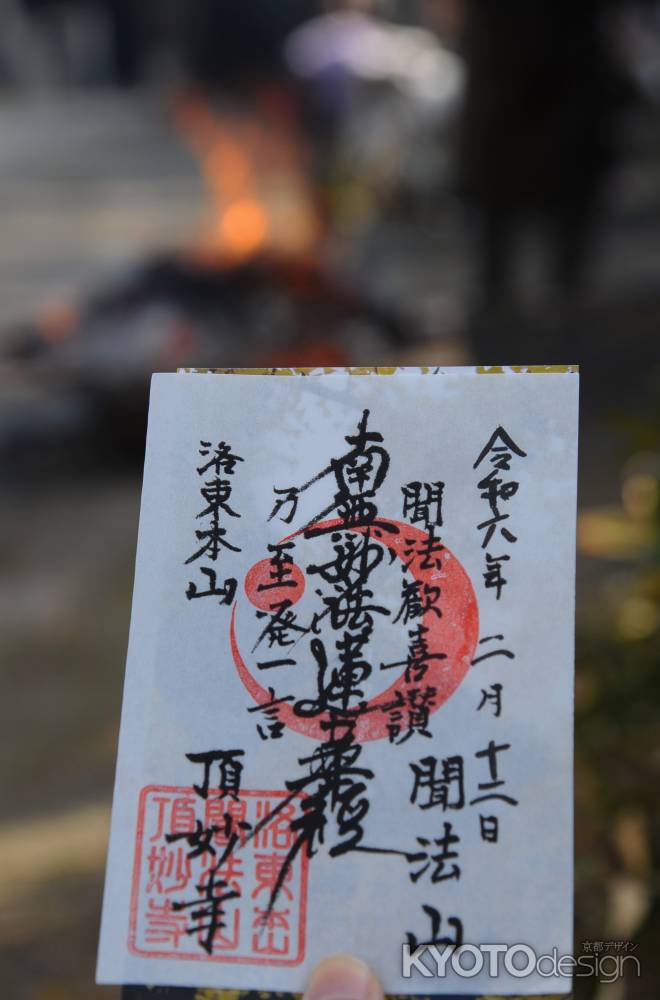 令和六年 二月 十二日
聞法歓喜讃
聞法山
南無妙法蓮華経
乃至発一言
洛東本山
頂妙寺
洛東本山
聞法山
頂妙寺
京都デザイン
KYOTOdesign